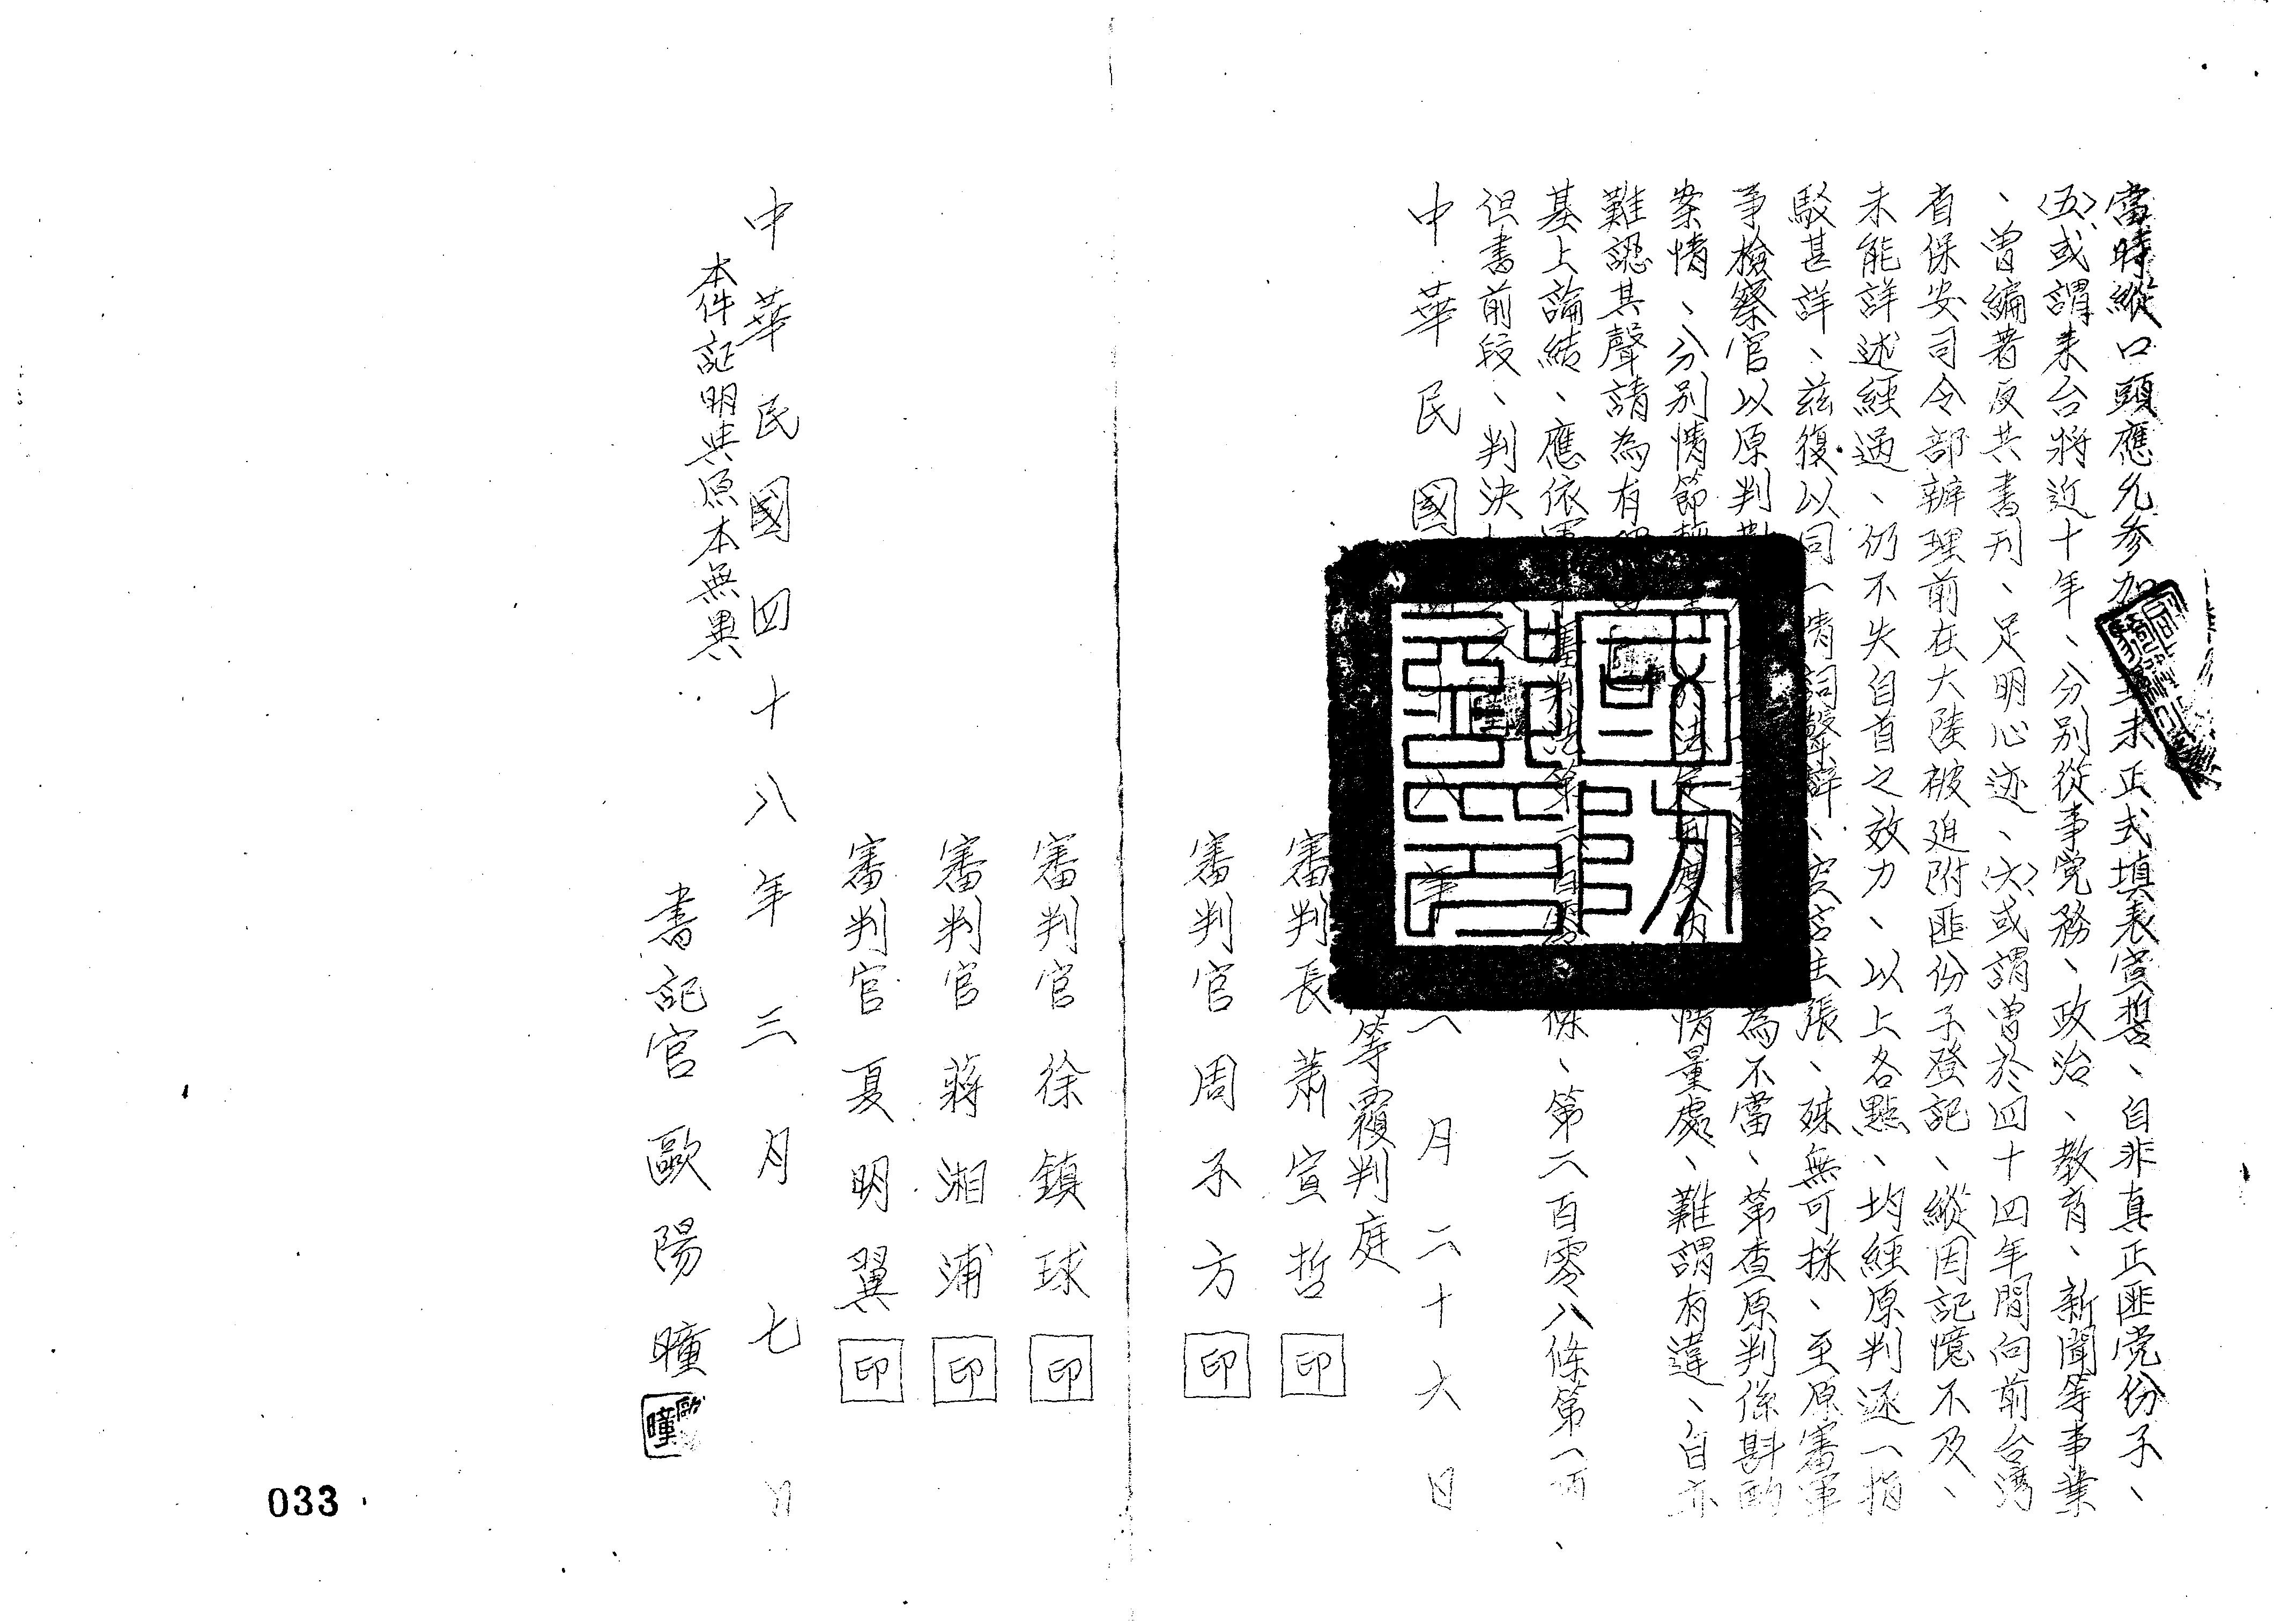 當時縱口頭應允參加並未正式填表宣誓、自非真正匪党份子、
〈五〉或謂来台將近十年、分別從事党務、政治、教育、新聞等事業
、曾編著反共書刊、足明心迹、〈六〉或謂曾於四十四年間向前台湾
省保安司令部辦理前在大陸被迫附匪份子登記、縱因記憶不及、
未能詳述經過、仍不失自首之效力、以上各點、均經原判逐一指
駁甚詳、兹復以同一情詞聲辯、空言主張、殊無可採、至原審軍
事檢察官以原判 為不當、第查原判係斟酌
案情、分別情節 法定刑度內 情量處、難謂有違、自亦
難認其聲請為有
基上論結、應依軍 審判法第二百零 條、第二百零八條第一項
但書前段、判決如 文
中華民國 八年 一月二十六日
等覆判庭
審判長 蕭宣哲 印
審判官 周子方 印
審判官 徐鎮球 印
審判官 蔣湘浦 印
審判官 夏明翼 印
中華民國四十八年三月七日
本件証明與原本無異
書記官 歐陽曈
國防部印
033